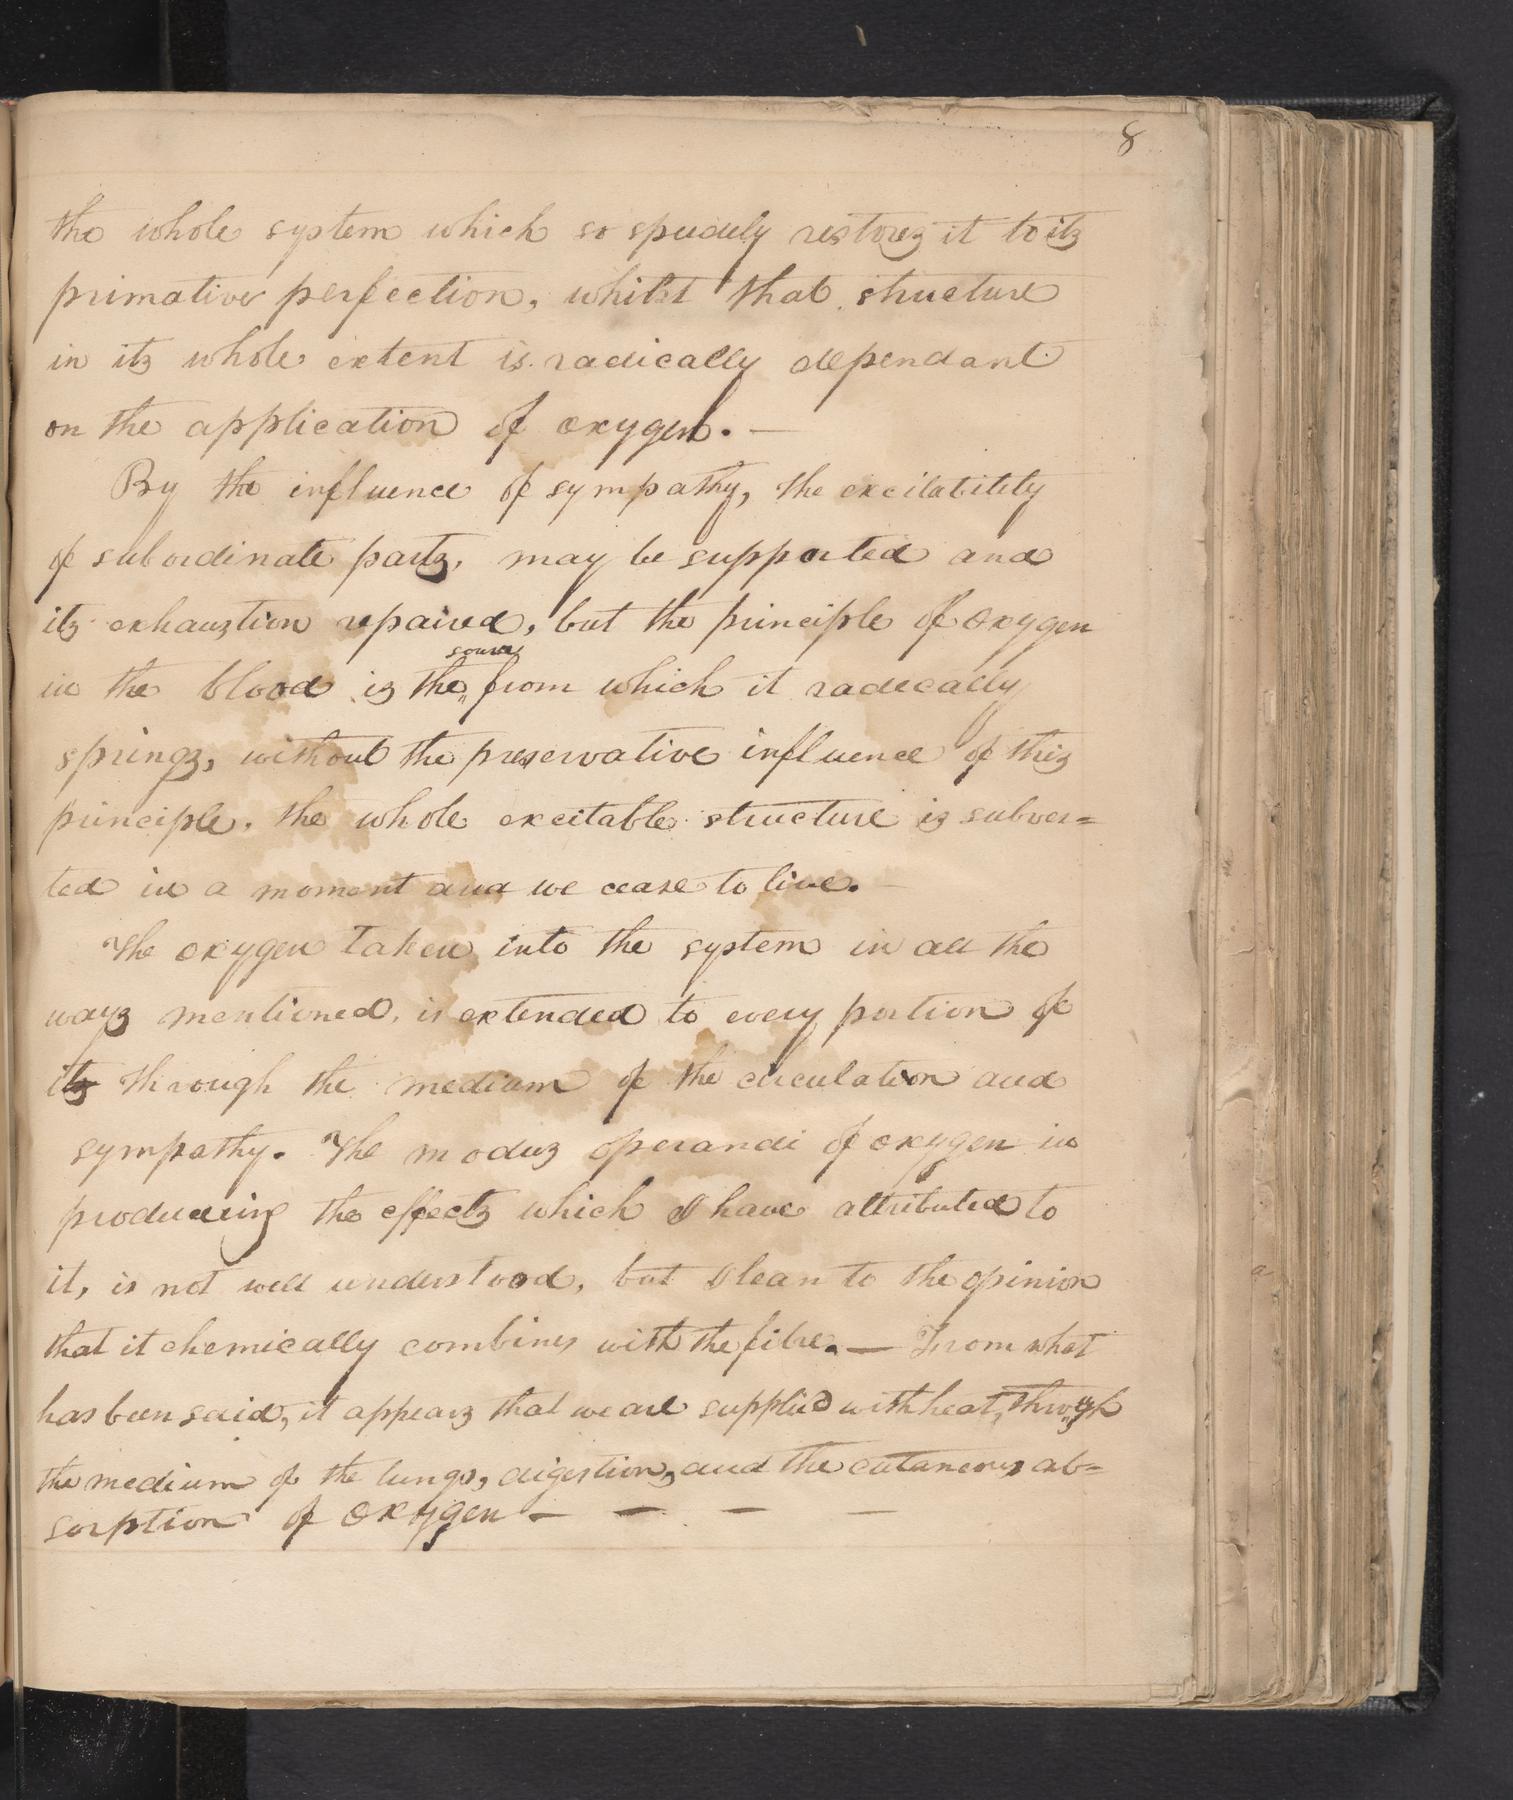 8
the whole system which so speedely restores it to its
primative perfection, whilst that structure
in its whole extent is radically dependant
on the application of oxygen. —
By the influence of sympathy, the excitability
of subordinate parts, may be supported and
its exhaustion repaired, but the principle of oxygen
source
in the blood is the from which it radecally
springs, without the preservative influence of this
principle, the whole excitable structure is subver=
ted in a moment and we cease to live. —
The oxygen taken into the system in all the
ways mentioned, is extended to every portion of
its through the medium of the circulation and
sympathy. The modus operandi of oxygen in
producing the effects which I have attributed to
it, is not well understood, but I lean to the opinion
that it chemically combines with the fibre. — From what
has been said, it appears that we are supplied with heat, through
the medium of the lungs, digestion, and the cutaneous ab=
sorption of oxygen — — — —